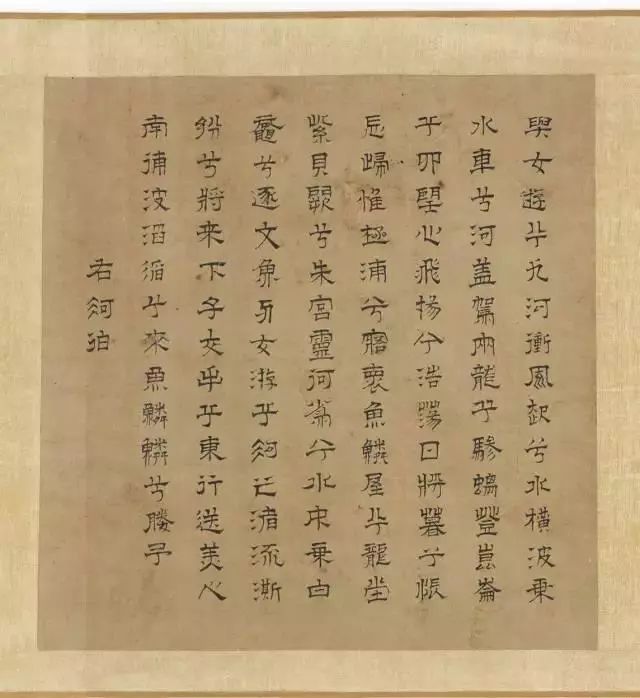 與女遊兮九河衝風起兮水橫波乗
水車兮河蓋駕兩龍兮驂螭登崑崙
兮四望心飛揚兮浩蕩日將暮兮悵
忘歸惟極浦兮寤褱魚鱗屋兮龍堂
紫貝闕兮朱宮靈何為兮水中乗白
黿兮逐文魚與女游乎河之渚流澌
紛兮將來下子交手兮東行送美人
南浦波滔滔兮來魚鱗鱗兮媵予
右河伯